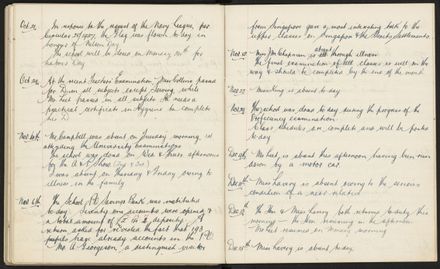 Oct. 21. In response to the request of the Navy League, per
Circular of 1907, the flag was flown to day in
honour of Nelson Day
The school will be closed on Monday 24th for
Labour Day
Oct. 29. At the recent Teachers' Examination, Miss Collins passed
for D in all subjects except Drawing, while
Miss Feist passed in all subjects & needs a
practical certificate in Hygiene to complete
her D
Nov. 4th. Mr Campbell was absent on Thursday morning in
attending the University Examinations
The school was closed on Wed & Thurs afternoons
by the A & P Show
was absent on Thursday & Friday owing to
illness in the family
Nov. 6th. The School P.O. Savings Bank was instituted
to day. Seventy one accounts were opened &
a total amount of deposited. A
return asked for revealed the fact that 193
pupils have already accounts in the P.O.
Mr H. George, a distinguished visitor
from Singapore gave a most interesting talk to the
upper classes on Singapore & the Straits Settlements.
Nov. 10. Miss Chapman is absent through illness
The final examination of all classes is well on the
way & should be completed by the end of the month
Nov. 22. Miss King is absent to day
Nov. 29. The school was closed to day during the progress of the
Proficiency examination
Class schedules are complete and will be posted
to day
Dec 9th. Miss Feist is absent this afternoon having been run
down by a motor car
Dec 10th. Miss Harvey is absent owing to the serious
condition of a near relative
Dec 12th. Mr Hen & Miss Harvey both returned to duty this
morning, Mr Hen remaining in the afternoon
Miss Feist resumed on Monday morning
Dec 15th. Miss Harvey is absent to day